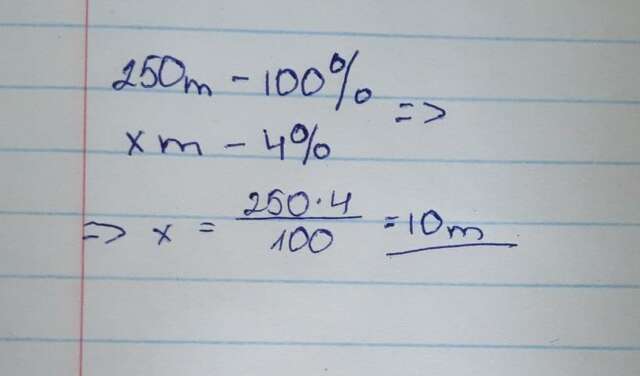 250m - 100%
xm - 4%
=>
=> x = 250·4 / 100 = 10m